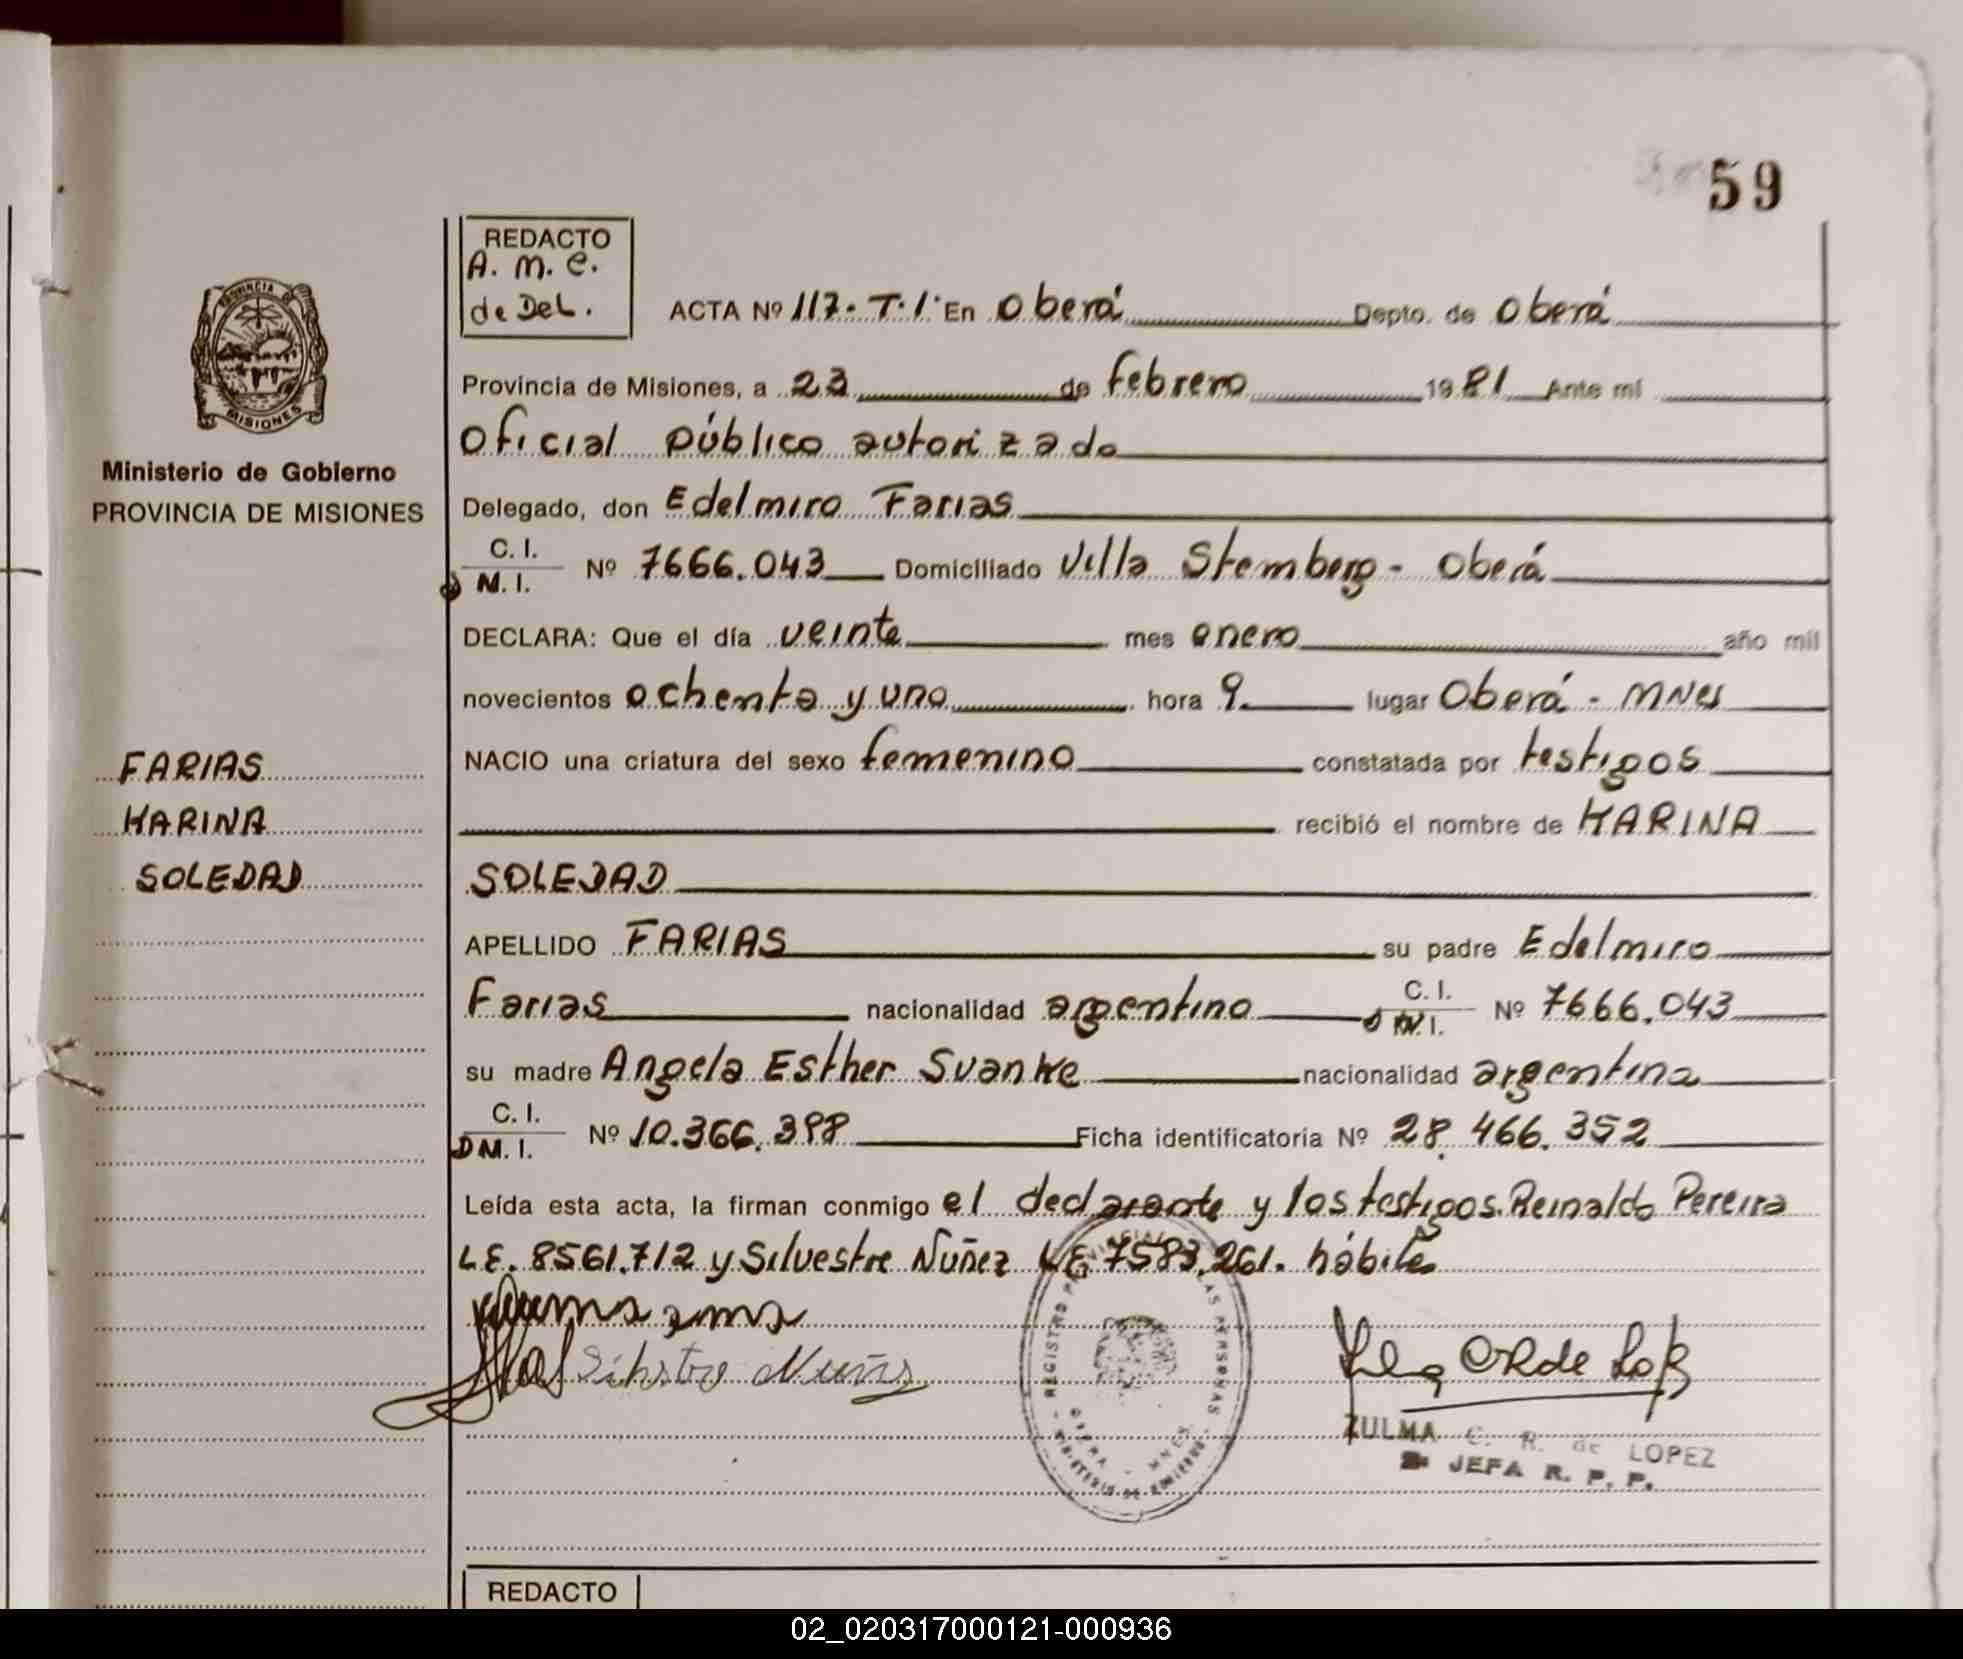 59
REDACTO
A. M. C.
de Del.
ACTA Nº 117. T. 1. En Oberá Depto. de Oberá
Provincia de Misiones, a 23 de febrero 1981 Ante mí
Oficial público autorizado
Delegado, don Edelmiro Farias
C. I.
Nº 7666.043 Domiciliado Villa Stemberg - Oberá
M. I.
DECLARA: Que el día veinte mes enero año mil
novecientos ochenta y uno hora 9 lugar Oberá - Mnes
NACIO una criatura del sexo femenino constatada por testigos
recibió el nombre de KARINA
SOLEDAD
APELLIDO FARIAS su padre Edelmiro
Farias nacionalidad argentino C. I. Nº 7666.043
D N. I.
su madre Angela Esther Suanke nacionalidad argentina
C. I.
D M. I. Nº 10.366.398 Ficha identificatoria Nº 28.466.352
Leída esta acta, la firman conmigo el declarante y los testigos. Reinaldo Pereira
L.E. 8561.712 y Silvestre Nuñez LE 7583.261. hábiles
ZULMA C. R. de LOPEZ
JEFA R. P. P.
PROVINCIA DE
MISIONES
Ministerio de Gobierno
PROVINCIA DE MISIONES
FARIAS
KARINA
SOLEDAD
REDACTO
02_020317000121-000936